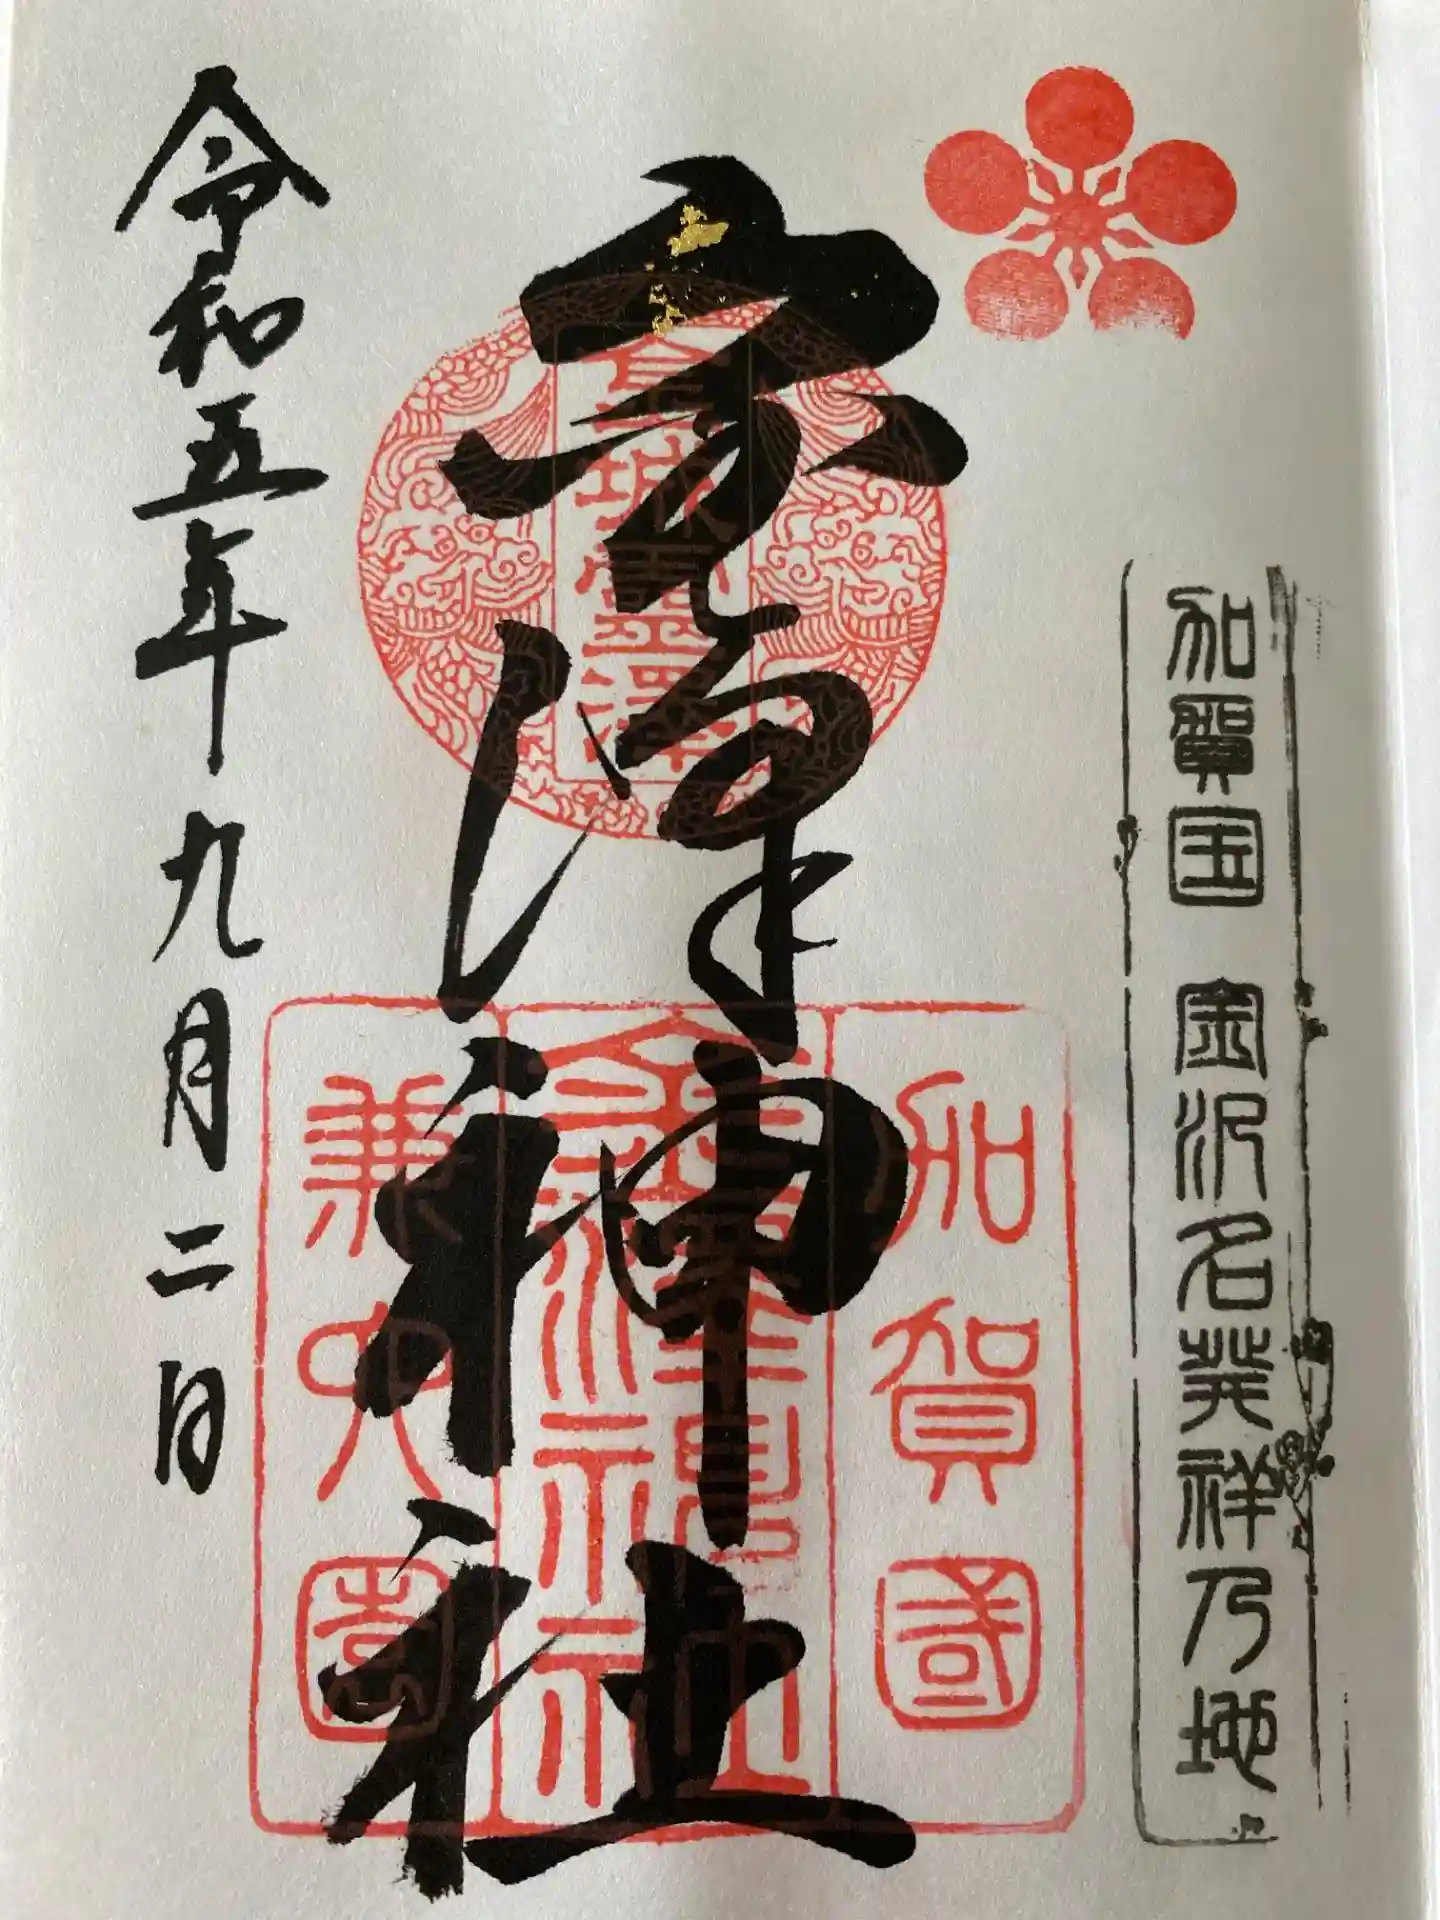 加賀国 金沢名発祥乃地
金城霊澤
金澤神社
加賀國
金澤神社
兼六園
令和五年九月二日